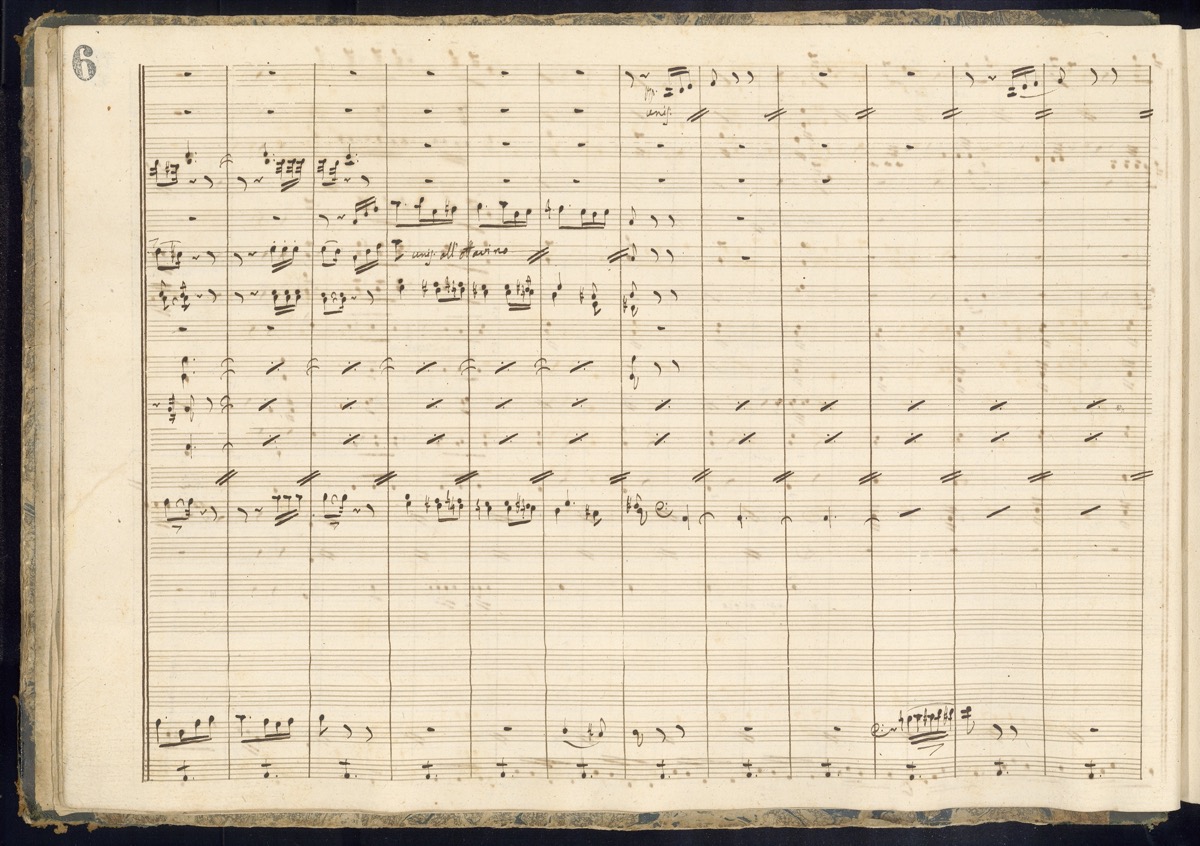 6
unis:
unis: all' ottavino